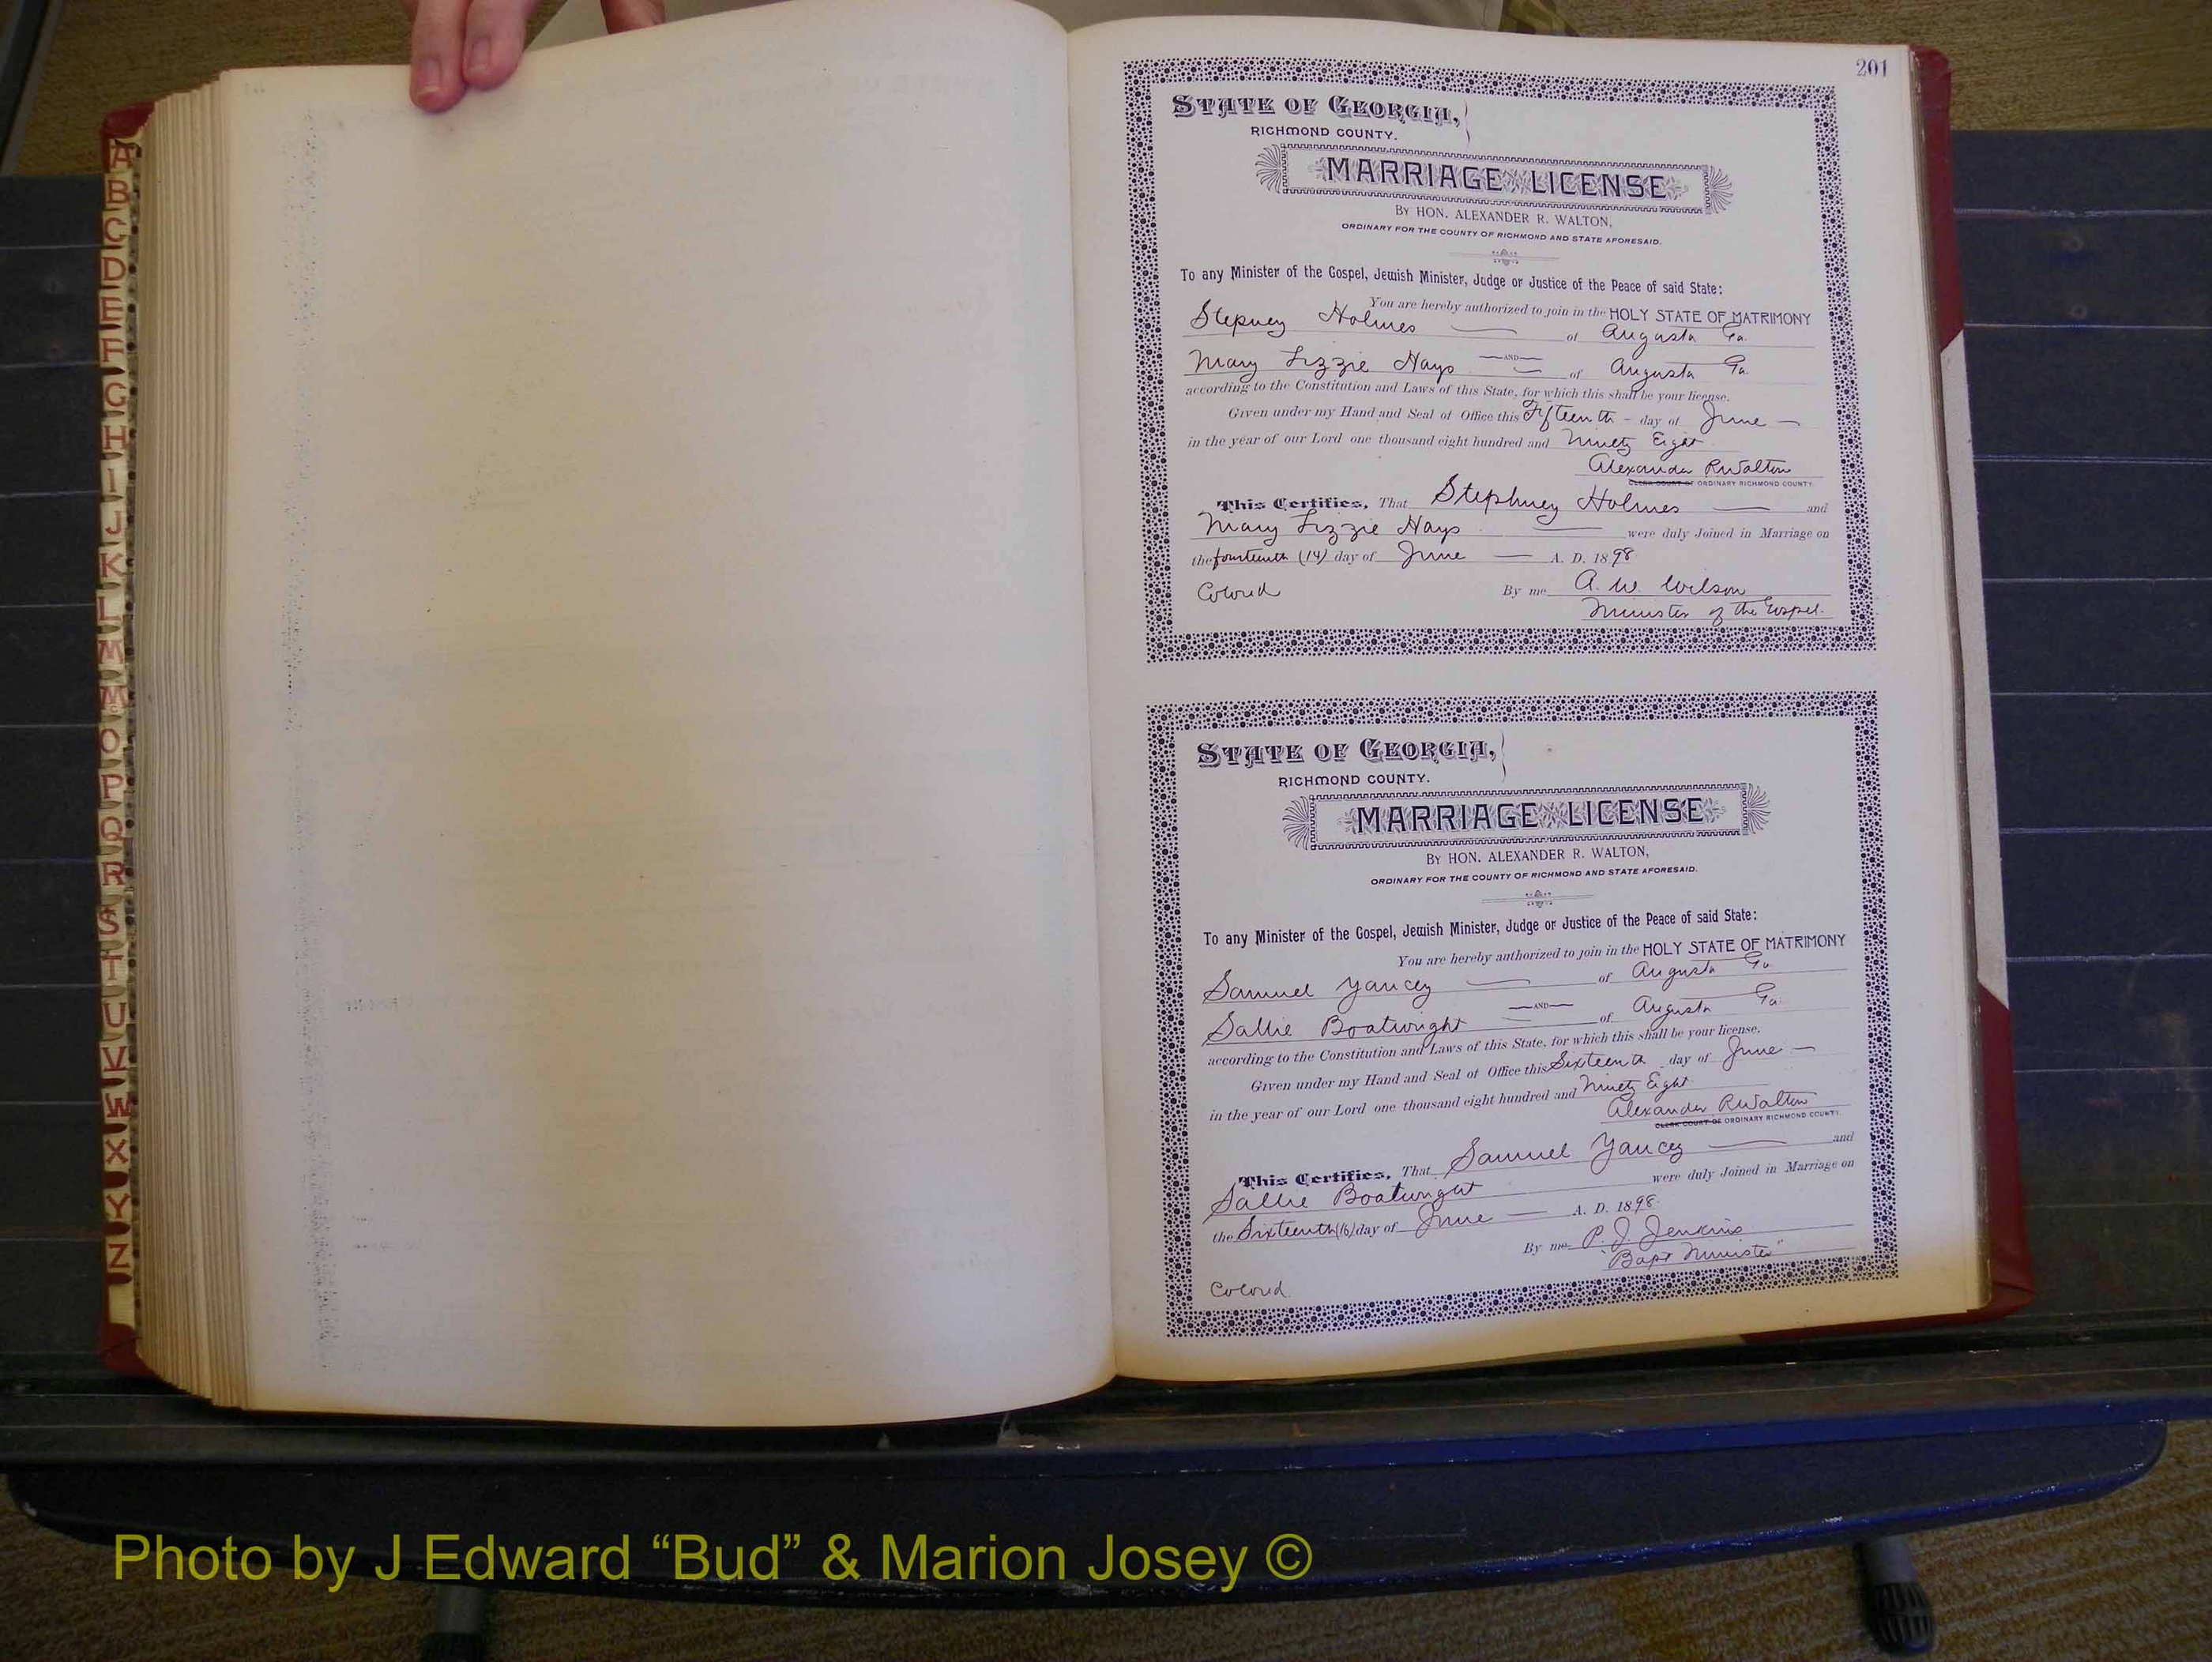 201
STATE OF GEORGIA,
RICHMOND COUNTY.
MARRIAGE LICENSE
BY HON. ALEXANDER R. WALTON,
ORDINARY FOR THE COUNTY OF RICHMOND AND STATE AFORESAID.
To any Minister of the Gospel, Jewish Minister, Judge or Justice of the Peace of said State:
You are hereby authorized to join in the HOLY STATE OF MATRIMONY
Stepney Holmes of Augusta Ga.
AND
Mary Lizzie Hays of Augusta Ga.
according to the Constitution and Laws of this State, for which this shall be your license.
Given under my Hand and Seal of Office this Fifteenth day of June
in the year of our Lord one thousand eight hundred and Ninety Eight
Alexander R Walton
CLERK COURT OF ORDINARY RICHMOND COUNTY.
This Certifies, That Stephney Holmes and
Mary Lizzie Hays were duly Joined in Marriage on
the fourteenth (14) day of June A. D. 1898
Colored By me A. W. Wilson
Minister of the Gospel.
STATE OF GEORGIA,
RICHMOND COUNTY.
MARRIAGE LICENSE
BY HON. ALEXANDER R. WALTON,
ORDINARY FOR THE COUNTY OF RICHMOND AND STATE AFORESAID.
To any Minister of the Gospel, Jewish Minister, Judge or Justice of the Peace of said State:
You are hereby authorized to join in the HOLY STATE OF MATRIMONY
Samuel Yancey of Augusta Ga
AND
Sallie Boatwright of Augusta Ga.
according to the Constitution and Laws of this State, for which this shall be your license.
Given under my Hand and Seal of Office this Sixteenth day of June
in the year of our Lord one thousand eight hundred and Ninety Eight
Alexander R Walton
CLERK COURT OF ORDINARY RICHMOND COUNTY.
This Certifies, That Samuel Yancey and
Sallie Boatwright were duly Joined in Marriage on
the Sixteenth (16) day of June A. D. 1898.
By me P. J. Jenkins
"Bapt Minister"
Colored.
A
B
C
D
E
F
G
H
I
J
K
L
M
Mc
O
P
Q
R
S
T
U
V
W
X
Y
Z
Photo by J Edward “Bud” & Marion Josey ©